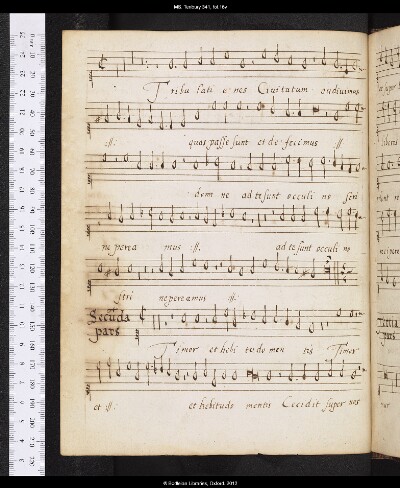 MS. Tenbury 341, fol. 16v
Tribulati o nes Ciuitatum audiuimus
:ij: quas passe sunt et de fecimus :ij:
domi ne ad te sunt occuli no stri
ne perea mus :ij: ad te sunt occuli no
stri ne pereamus :ij:
Secūda
pars
Timor et hebi tudo men tis Timor
et :ij: et hebitudo mentis Cecidit super nos
© Bodleian Libraries, Oxford, 2012